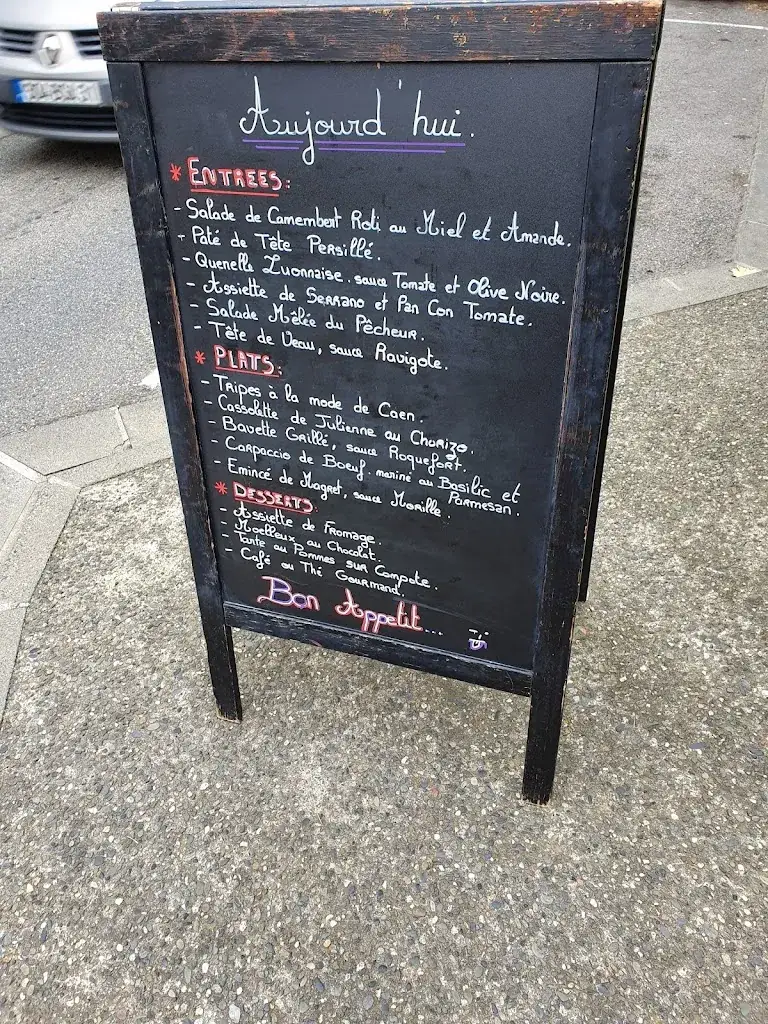 Aujourd'hui.
* ENTREES:
- Salade de Camembert Roti au Miel et Amande.
- Paté de Tête Persillé.
- Quenelle Lyonnaise. sauce Tomate et Olive Noire.
- Assiette de Serrano et Pan Con Tomate.
- Salade Mêlée du Pêcheur.
- Tête de Veau, sauce Ravigote.
* PLATS:
- Tripes à la mode de Caen.
- Cassolette de Julienne au Chorizo.
- Bavette Grillé, sauce Roquefort.
- Carpaccio de Boeuf mariné au Basilic et
Parmesan.
- Emincé de Magret, sauce Morille.
* DESSERTS:
- Assiette de Fromage.
- Moelleux au Chocolat.
- Tarte au Pommes sur Compote.
- Café ou Thé Gourmand.
Bon Appetit...